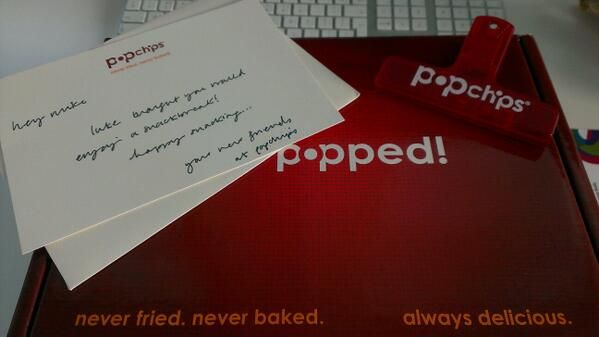 popchips
never fried. never baked.
hey mike
luke thought you would
enjoy a snackbreak!
happy snacking...
your new friends
at popchips
popchips
popped!
never fried. never baked.
always delicious.